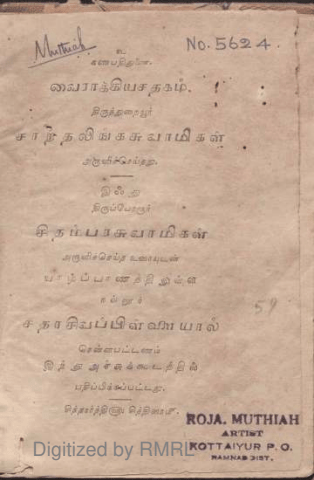 Muthiah
No. 5624.
உ
கணபதிதுணை.
வைராக்கியசதகம்.
திருத்துறையூர்
சாந்தலிங்கசுவாமிகள்
அருளிச்செய்தது.
இஃது
திருப்போரூர்
சிதம்பரசுவாமிகள்
அருளிச்செய்த உரையுடன்
யாழ்ப்பாணத்திலுள்ள
நல்லூர்
சதாசிவப்பிள்ளையால்
சென்னபட்டணம்
அச்சுக்கூடத்தில்
பதிப்பிக்கப்பட்டது.
ROJA. MUTHIAH
ARTIST
KOTTAIYUR P. O.
RAMNAD DIST.
Digitized by RMRL